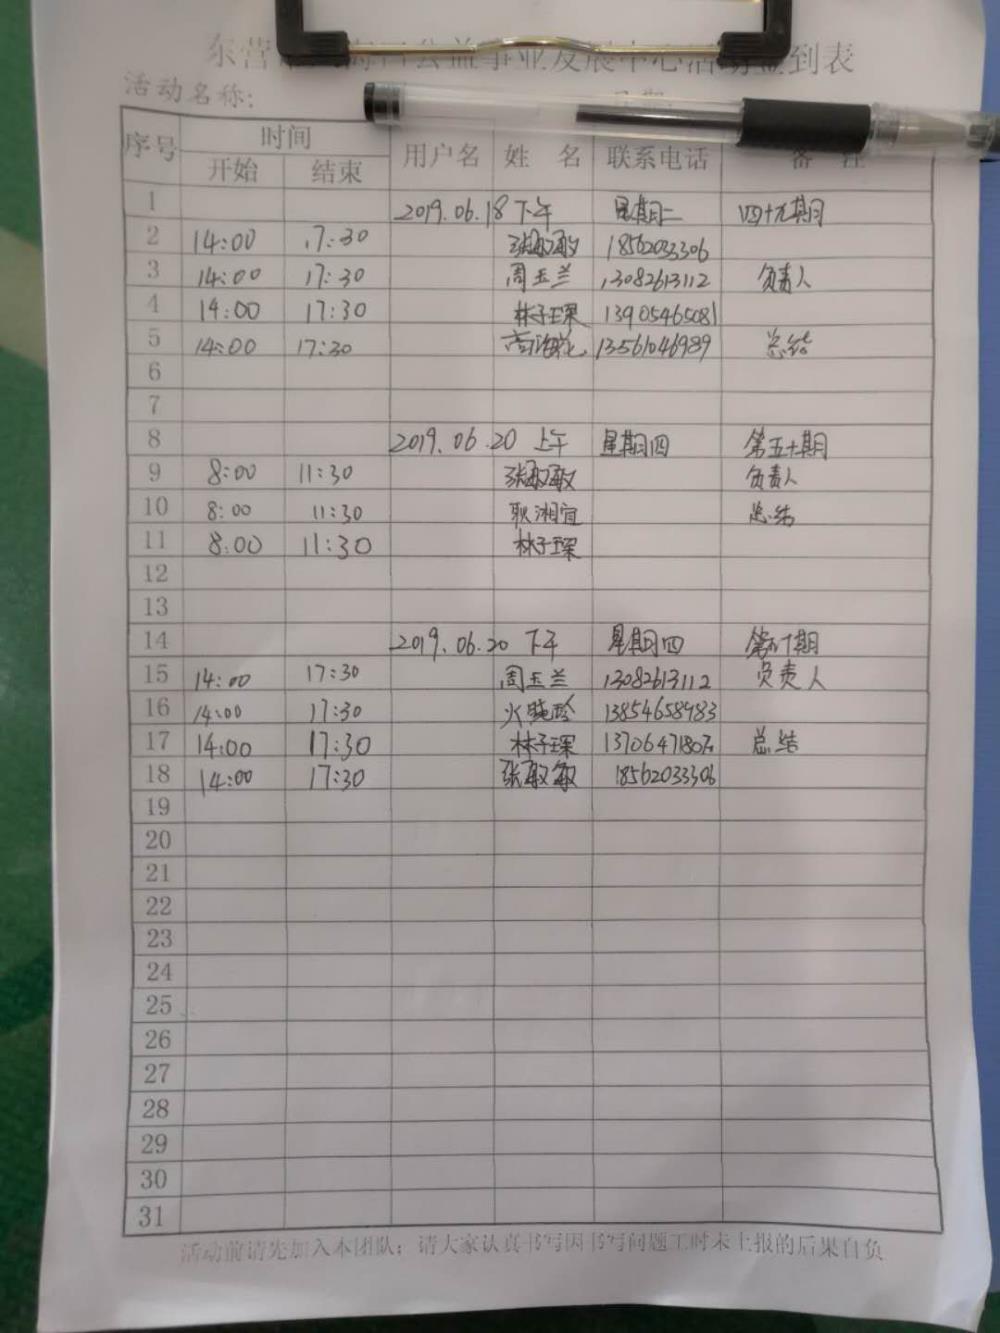 东营 公益事业发展中心活动签到表
活动名称:
序号 时间 用户名 姓 名 联系电话 备 注
开始 结束
1 2019.06.18 下午 星期二 四十九期
2 14:00 17:30 张敏敏 18562033306
3 14:00 17:30 周玉兰 13082613112 负责人
4 14:00 17:30 林子琛 13905465081
5 14:00 17:30 13561046989 总结
6
7
8 2019.06.20 上午 星期四 第五十期
9 8:00 11:30 张敏敏 负责人
10 8:00 11:30 耿湘宜 总结
11 8:00 11:30 林子琛
12
13
14 2019.06.20 下午 星期四
15 14:00 17:30 周玉兰 13082613112 负责人
16 14:00 17:30 火艳玲 13854658983
17 14:00 17:30 林子琛 总结
18 14:00 17:30 张敏敏 18562033306
19
20
21
22
23
24
25
26
27
28
29
30
31
活动前请先加入本团队；请大家认真书写因书写问题工时未上报的后果自负